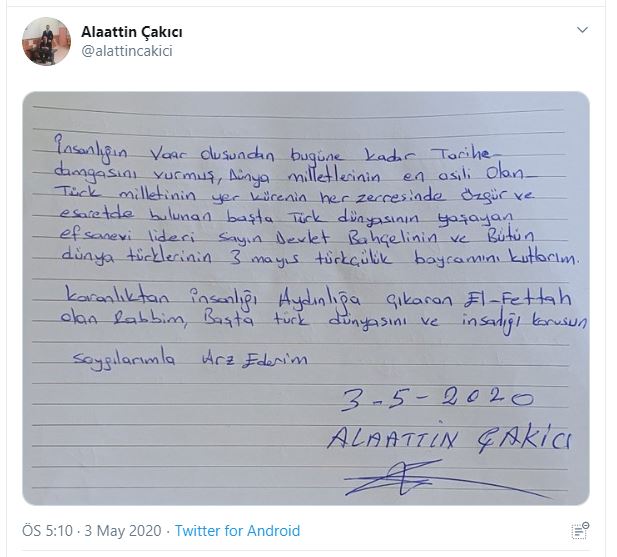 Alaattin Çakıcı
@alattincakici
İnsanlığın Vaar olusundan bugüne kadar Tarihe-
damgasını vurmuş, Dünya milletlerinin en asili Olan-
Türk milletinin yer kürenin her zerresinde Özgür ve
esaretde bulunan başta Türk dünyasının yaşayan
efsanevi lideri sayın Devlet Bahçelinin ve Bütün
dünya türklerinin 3 mayıs türkçülük bayramını kutlarım.
karanlıktan insanlığı Aydınlığa çıkaran El-Fettah
olan Rabbim, Başta türk dünyasını ve insanlığı korusun
saygılarımla Arz Ederim
3-5-2020
ALAATTİN ÇAKICI
ÖS 5:10 · 3 May 2020 · Twitter for Android